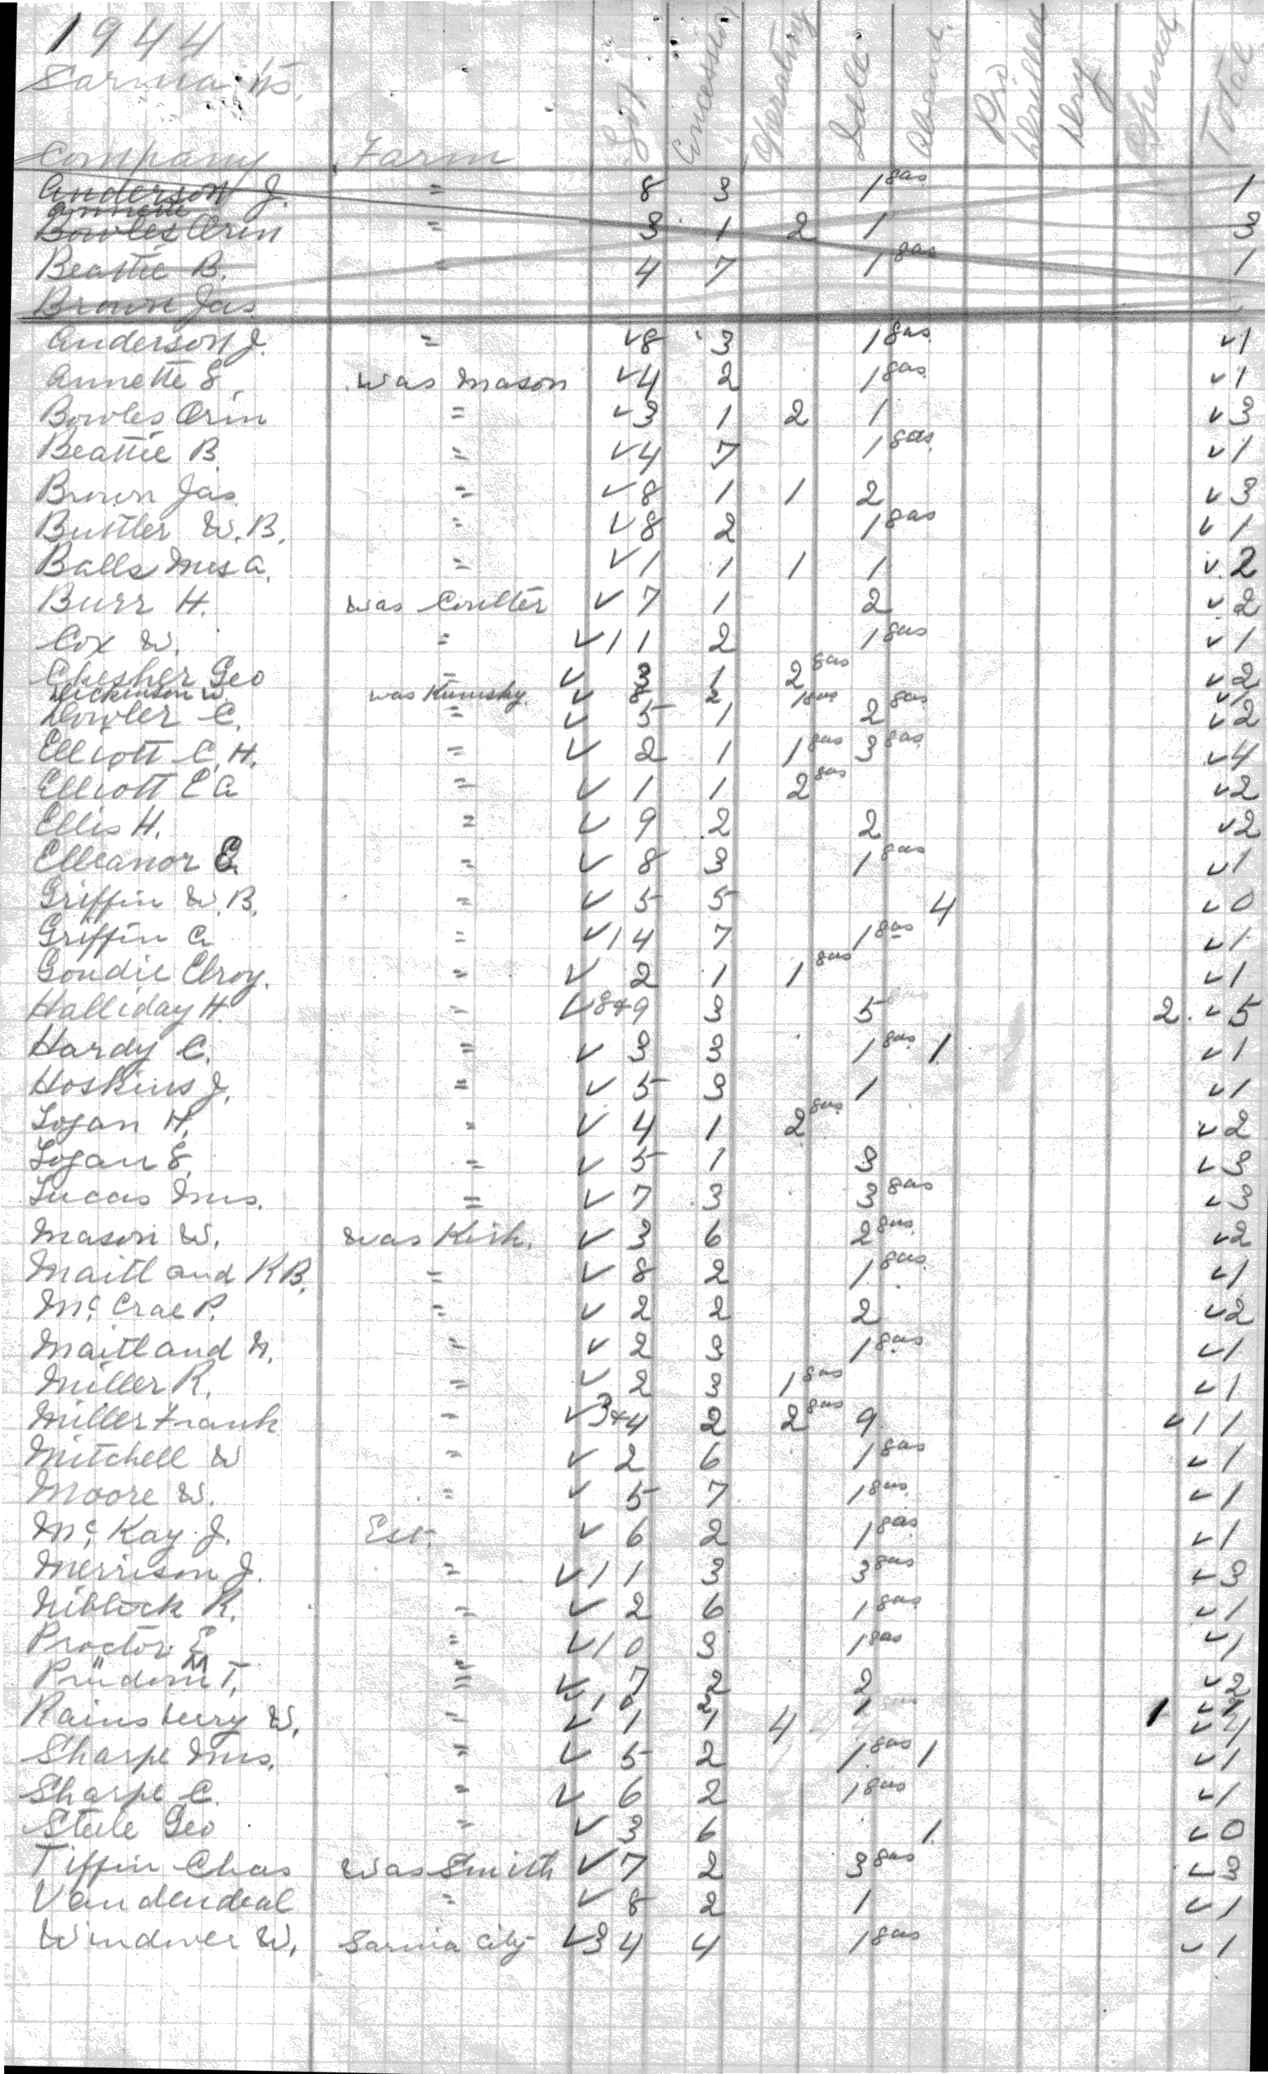 1944
Sarnia Tp.
Company Farm Lot Concession Operating Idle Aband. Drilled Dry Total
Anderson J. = 8 3 1 gas 1
Annette
Bowles Orin = 3 1 2 1 3
Beattie B. = 4 7 1 gas 1
Brown Jas
Anderson J. = ✓8 3 1 gas ✓1
Annette E. was Mason ✓4 2 1 gas ✓1
Bowles Orin = ✓3 1 2 1 ✓3
Beattie B. = ✓4 7 1 gas ✓1
Brown Jas = ✓8 1 1 2 ✓3
Buttler W.B. = ✓8 2 1 gas ✓1
Balls Mrs A. = ✓1 1 1 1 ✓2
Burr H. was Coulter ✓7 1 2 ✓2
Cox W. = ✓11 2 1 gas ✓1
Chesher Geo = ✓3 1 2 gas ✓2
Dickinson W. was ✓8 2 1 gas ✓1
Dowler C. = ✓5 1 2 gas ✓2
Elliott C.H. = ✓2 1 1 gas 3 gas ✓4
Elliott E A = ✓1 1 2 gas ✓2
Ellis H. = ✓9 2 2 ✓2
Elleanor E. = ✓8 3 1 gas ✓1
Griffin W.B. = ✓5 5 4 ✓0
Griffin A = ✓14 7 1 gas ✓1
Goudie Elroy. = ✓2 1 1 gas ✓1
Halliday H. = ✓8+9 3 5 gas 2 ✓5
Hardy C. = ✓3 3 1 gas 1 ✓1
Hoskins J. = ✓5 3 1 ✓1
Logan H. = ✓4 1 2 gas ✓2
Logan E. = ✓5 1 3 ✓3
Lucas Mrs. = ✓7 3 3 gas ✓3
Mason W. was Kirk. ✓3 6 2 gas ✓2
Maitland R.B. = ✓8 2 1 gas ✓1
McCrae P. = ✓2 2 2 ✓2
Maitland N. = ✓2 3 1 gas ✓1
Miller R. = ✓2 3 1 gas ✓1
Miller Frank = ✓3+4 2 2 gas 9 ✓11
Mitchell W = ✓2 6 1 gas ✓1
Moore W. = ✓5 7 1 gas ✓1
McKay J. Est. ✓6 2 1 gas ✓1
Merrison J. = ✓11 3 3 gas ✓3
Niblock R. = ✓2 6 1 gas ✓1
Proctor E = ✓10 3 1 gas ✓1
Prudom T. = ✓7 2 2 ✓2
" M = ✓10 2 1 gas ✓1
Rainsberry W. = ✓1 1 4 1 ✓4
Sharpe Mrs. = ✓5 2 1 gas 1 ✓1
Sharpe C. = ✓6 2 1 gas ✓1
Steele Geo = ✓3 6 1 ✓0
Tiffin Chas was Smith ✓7 2 3 gas ✓3
Vandendeal = ✓8 2 1 ✓1
Windover W. Sarnia City ✓34 4 1 gas ✓1